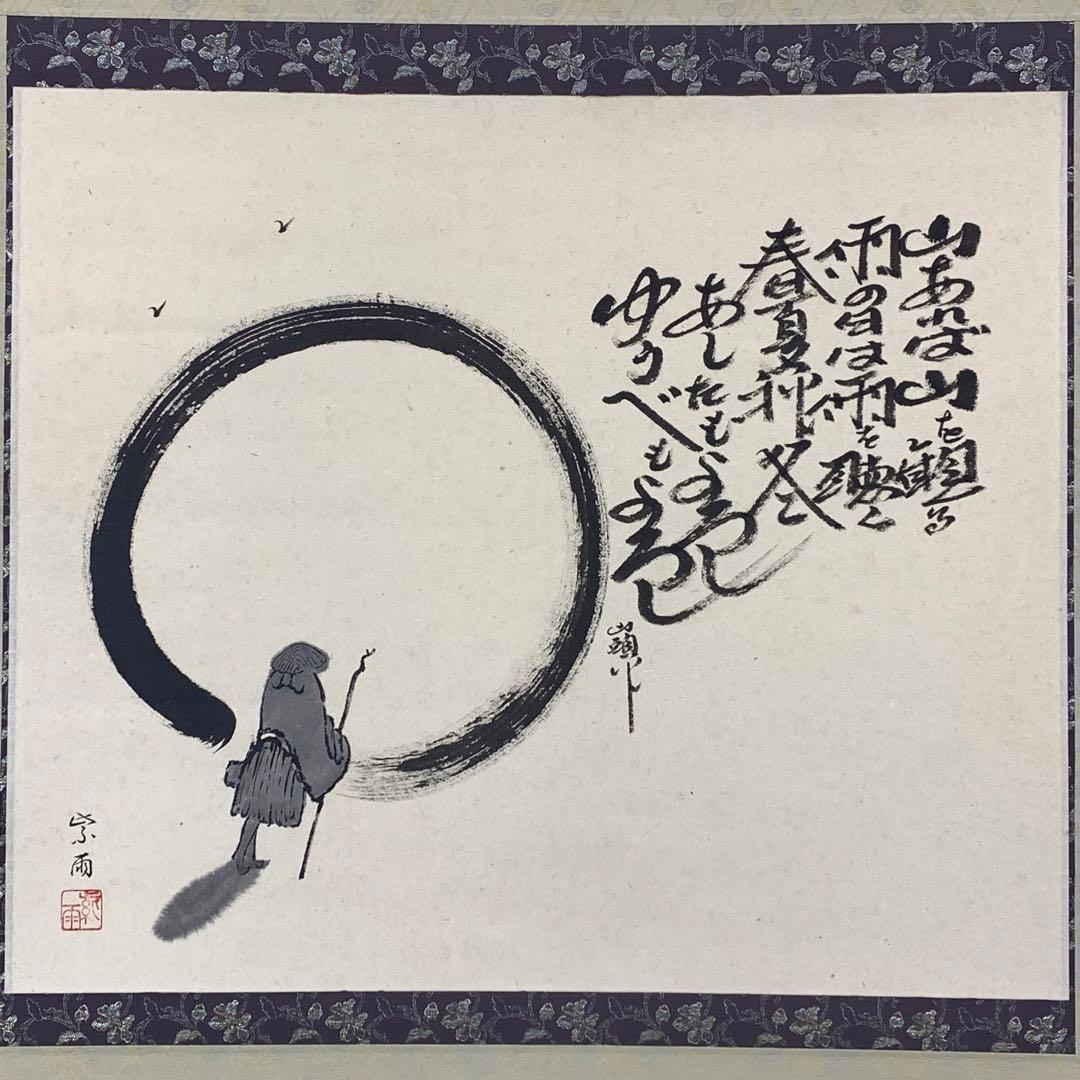 山あれば山を観る
雨の日は雨を聴く
春夏秋冬
あしたもよろし
ゆうべもよろし
山頭火
紫雨
紫雨